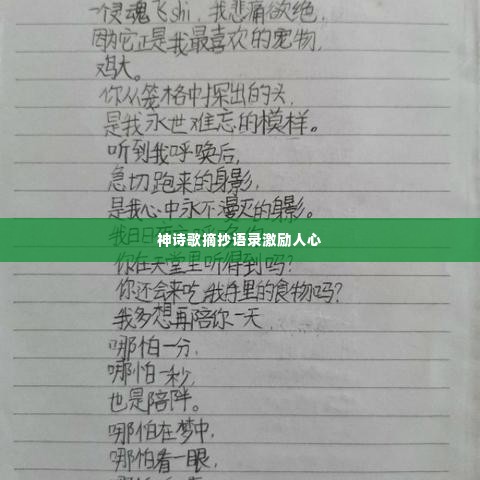 魂飞shi，我悲痛欲绝，
因为它正是我最喜欢的宠物，
鸡大。
你从笼格中探出的头，
是我永世难忘的模样。
听到我呼唤后，
急切跑来的身影，
是我心中永不漫灭的身影。
神诗歌摘抄语录激励人心
你在天堂里听得到吗？
你还会来吃我手里的食物吗？
我多想再陪你一天，
哪怕一分，
哪怕一秒，
也是陪阵。
哪怕在梦中，
哪怕看一眼，